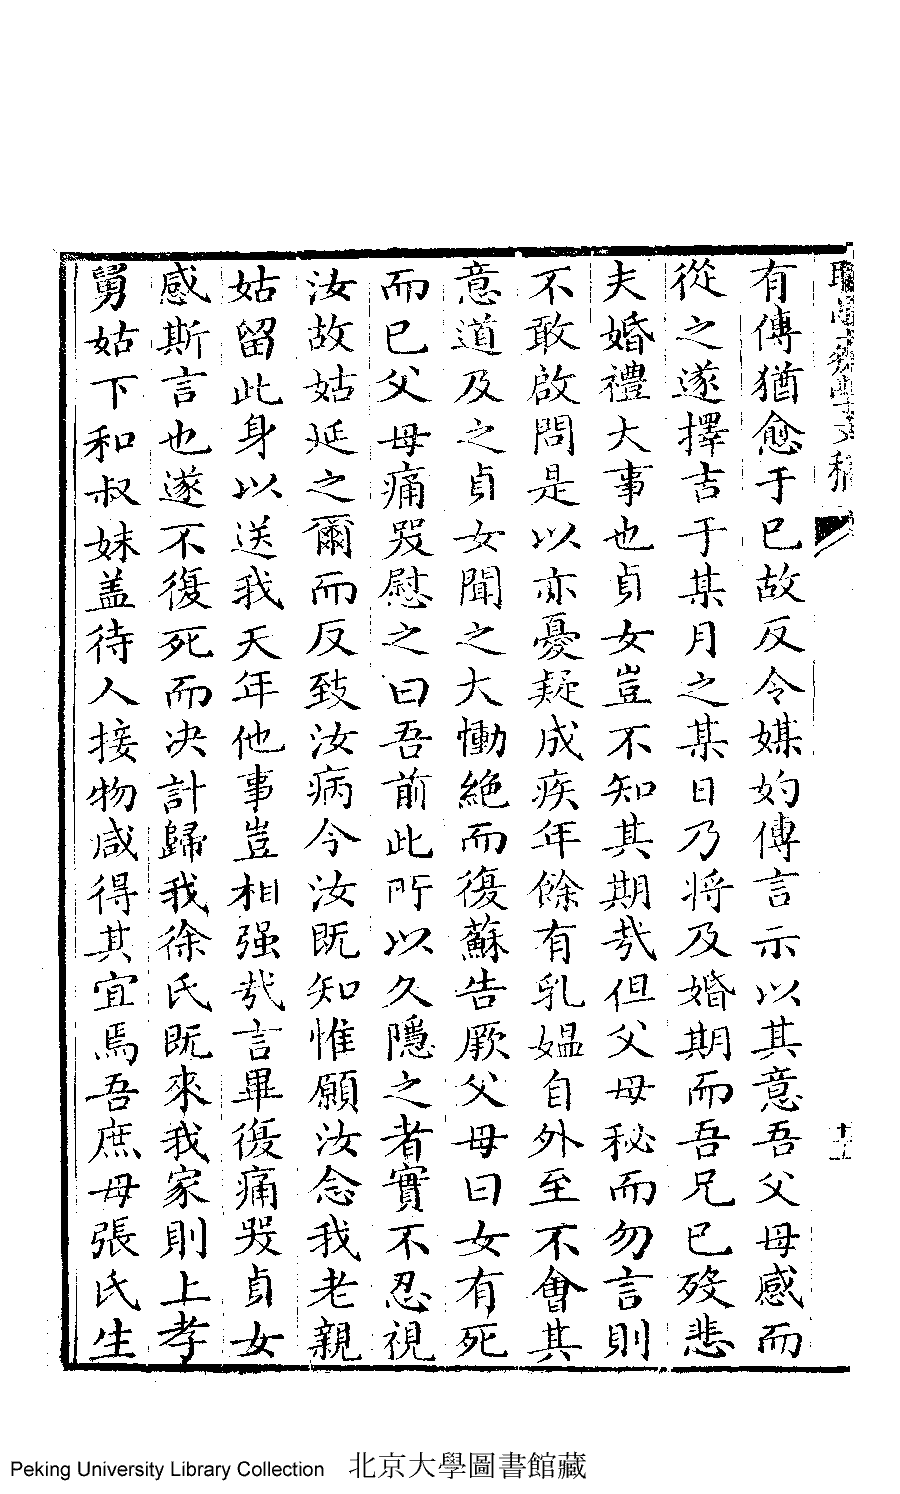 有傳猶愈于已故反令媒妁傳言示以其意吾父母感而
從之遂擇吉于某月之某日乃將及婚期而吾兄已殁悲
夫婚禮大事也貞女豈不知其期㢤但父母秘而勿言則
不敢啟問是以亦憂疑成疾年餘有乳媪自外至不會其
意道及之貞女聞之大慟絶而復蘇告厥父母曰女有死
而已父母痛哭慰之曰吾前此所以久隱之者實不忍視
汝故姑延之爾而反致汝病今汝既知惟願汝念我老親
姑留此身以送我天年他事豈相强㢤言畢復痛哭貞女
感斯言也遂不復死而决計歸我徐氏既來我家則上孝
舅姑下和叔妹盖待人接物咸得其宜焉吾庶母張氏生
Peking University Library Collection 北京大學圖書館藏